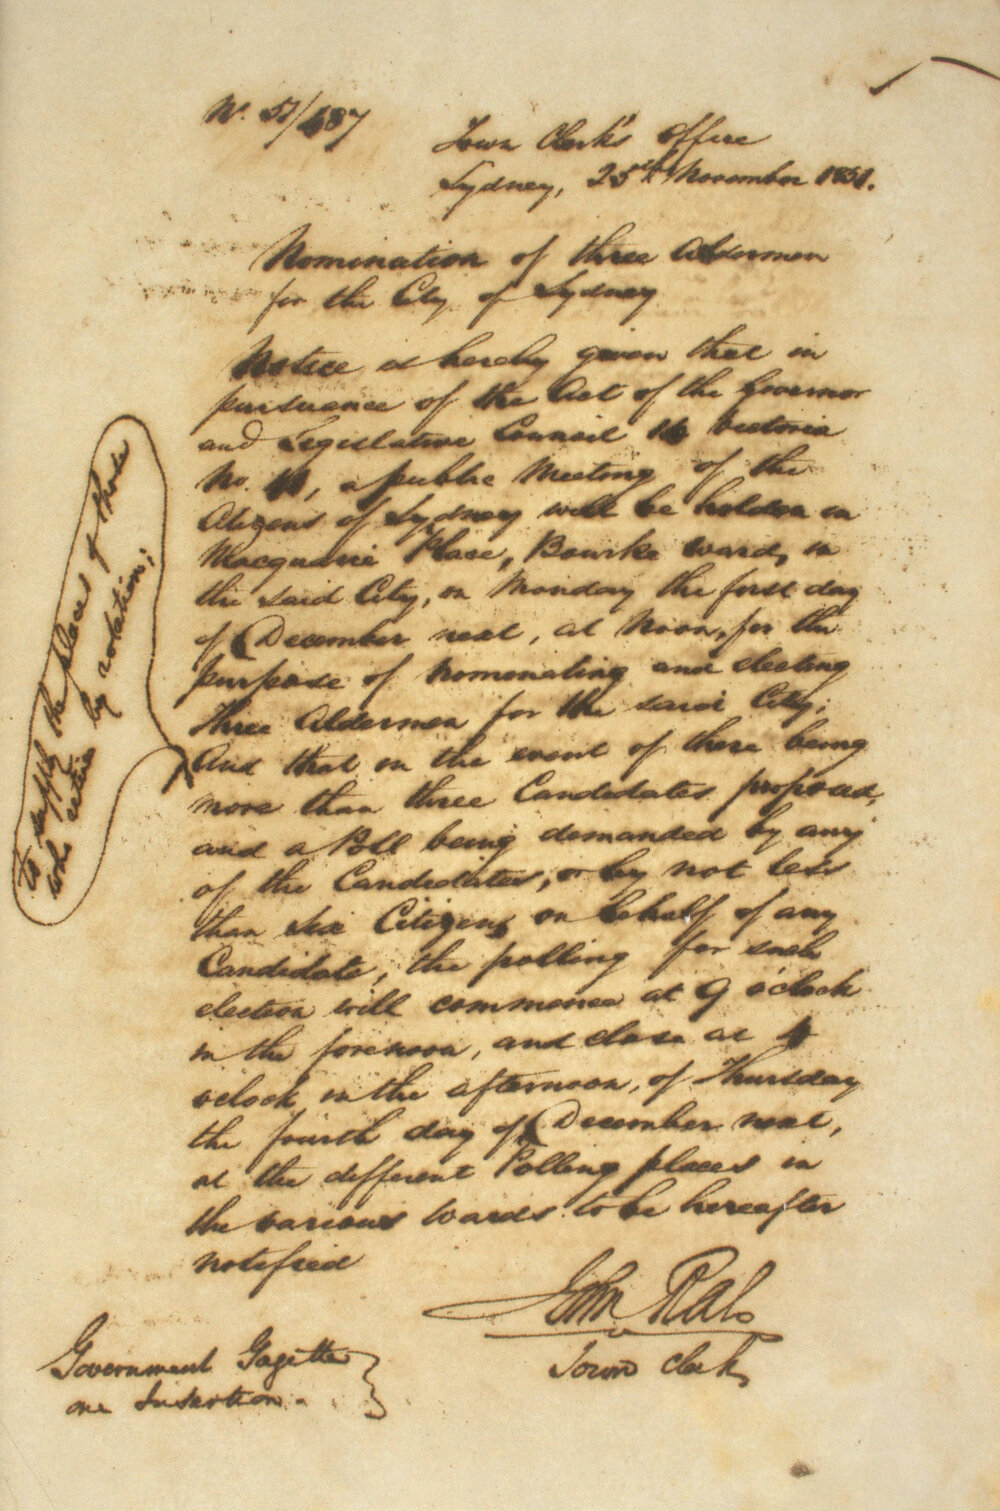 No. 51/487
Town Clerk's Office
Sydney, 25th November 1851.
Nomination of three Aldermen
for the City of Sydney
Notice is hereby given that in
pursuance of the Act of the Governor
and Legislative Council 14 Victoria
No. 41, a public Meeting of the
Citizens of Sydney will be holden in
Macquarie Place, Bourke Ward, in
the said City, on Monday the first day
of December next, at Noon, for the
purpose of nominating and electing
three Aldermen for the said City;
to supply the places of those
who retire by rotation;
And that in the event of there being
more than three Candidates proposed,
and a Poll being demanded by any
of the Candidates, or by not less
than six Citizens on behalf of any
Candidate, the polling for such
election will commence at 9 o'clock
in the forenoon, and close at 4
oclock in the afternoon, of Thursday
the fourth day of December next,
at the different Polling places in
the various Wards to be hereafter
notified
John Rae
Town Clerk
Government Gazette
one Insertion.